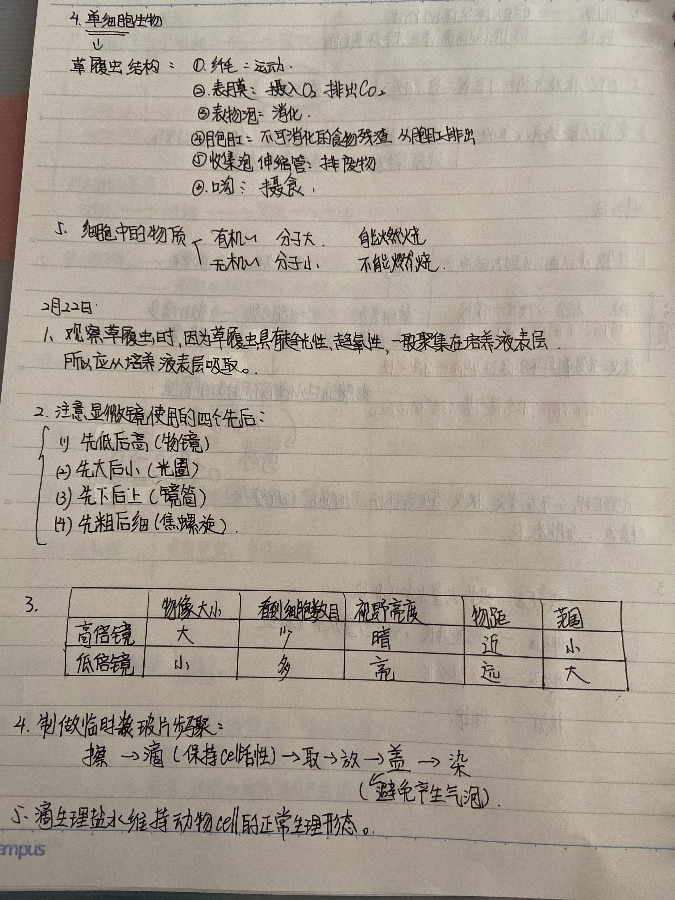 4. 单细胞生物
草履虫结构： ①. 纤毛：运动.
②. 表膜：摄入O₂ 排出CO₂
③ 食物泡：消化.
④ 胞肛：不可消化的食物残渣 从胞肛排出
⑤ 收集泡 伸缩管：排废物
⑥. 口沟：摄食.
5. 细胞中的物质 有机〜 分子大. 能燃烧
无机〜 分子小. 不能燃烧.
2月22日.
1、观察草履虫时,因为草履虫具有趋光性、趋氧性,一般聚集在培养液表层.
所以应从培养液表层吸取。.
2. 注意显微镜使用的四个先后：
(1) 先低后高(物镜)
(2) 先大后小(光圈)
(3) 先下后上(镜筒)
(4) 先粗后细(焦螺旋).
3. 物像大小 看到细胞数目 视野亮度 物距 范围
高倍镜 大 少 暗 近 小
低倍镜 小 多 亮 远 大
4. 制做临时装玻片步骤：
擦→滴(保持cell活性)→取→放→盖→染
(避免产生气泡).
5. 滴生理盐水维持动物cell的正常生理形态。.
ampus